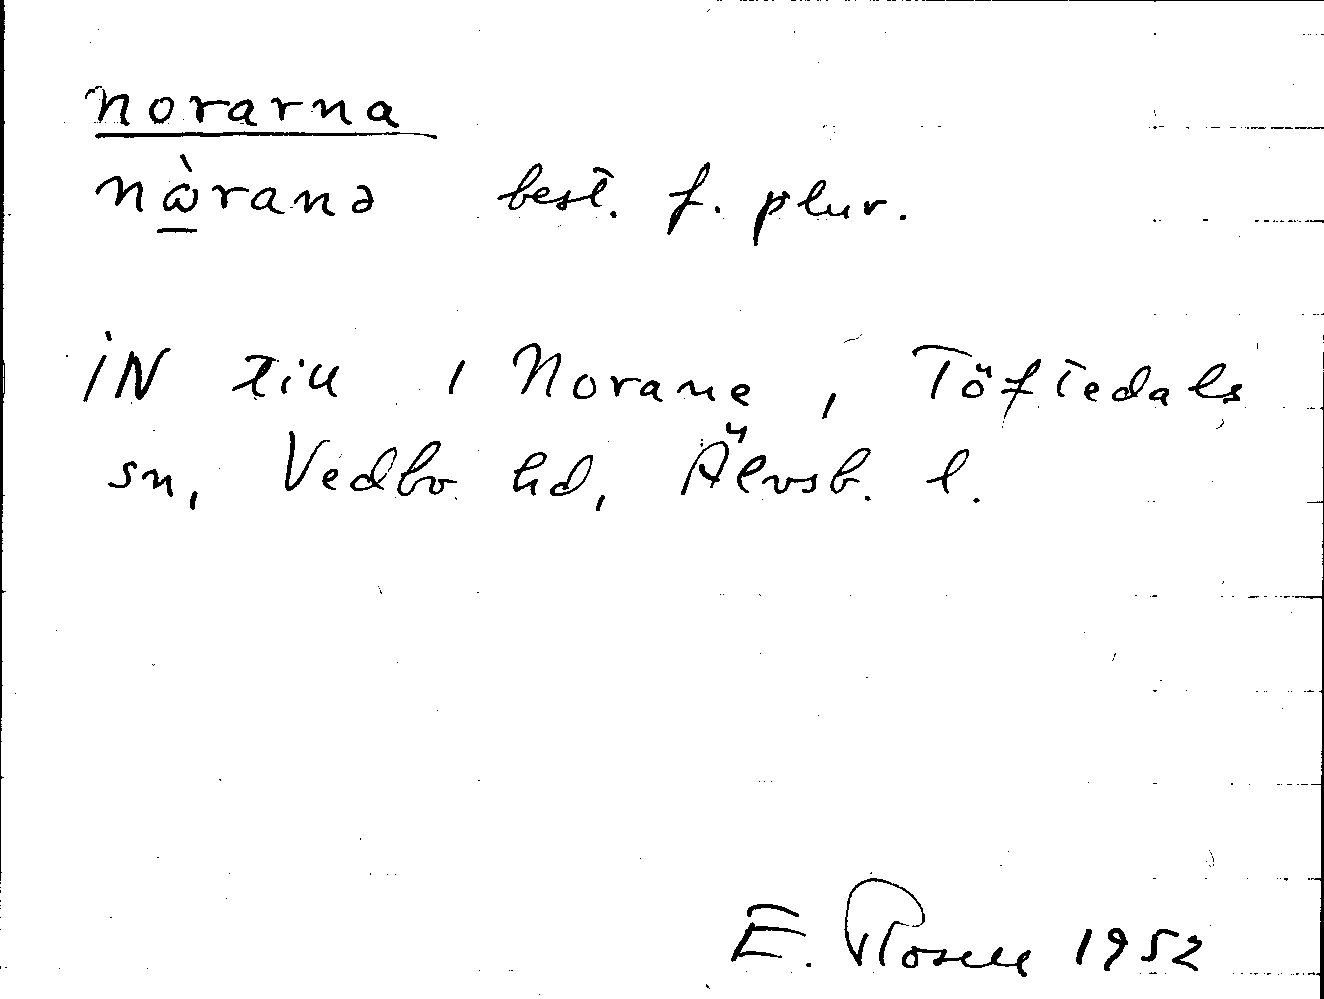 norarna
nὰ̱ranə best. f. plur.
iN till 1 Norane, Töftedals
sn, Vedbo hd, Älvsb. l.
E. Rosell 1952